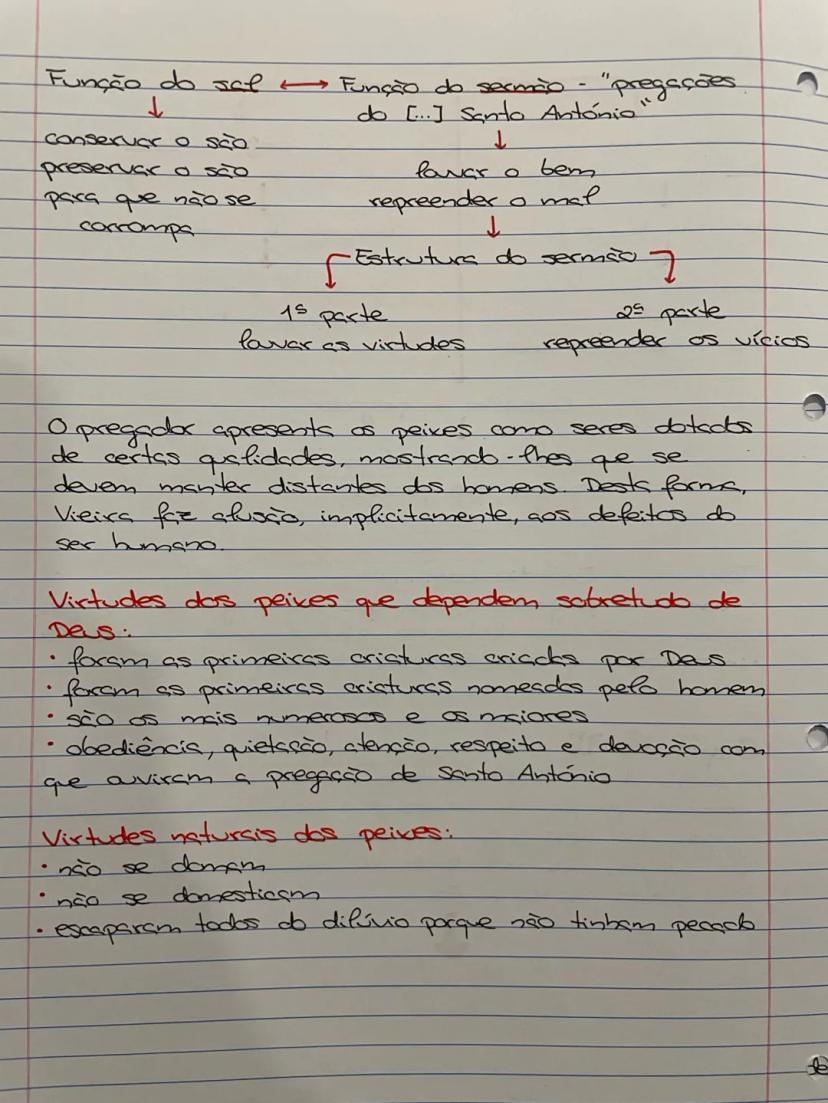 Função do sal ↔ Função do sermão - "pregações
do [...] Santo António"
conservar o são
preservar o são
para que não se
corrompa
louvar o bem
repreender o mal
Estrutura do sermão
1ª parte
louvar as virtudes
2ª parte
repreender os vícios
O pregador apresenta os peixes como seres dotados
de certas qualidades, mostrando-lhes que se
devem manter distantes dos homens. Desta forma,
Vieira faz alusão, implicitamente, aos defeitos do
ser humano.
Virtudes dos peixes que dependem sobretudo de
Deus:
• foram as primeiras criaturas criadas por Deus
• foram as primeiras criaturas nomeadas pelo homem
• são os mais numerosos e os maiores
• obediência, quietação, atenção, respeito e devoção com
que ouviram a pregação de Santo António
Virtudes naturais dos peixes:
• não se domam
• não se domesticam
• escaparam todos do dilúvio porque não tinham pecado